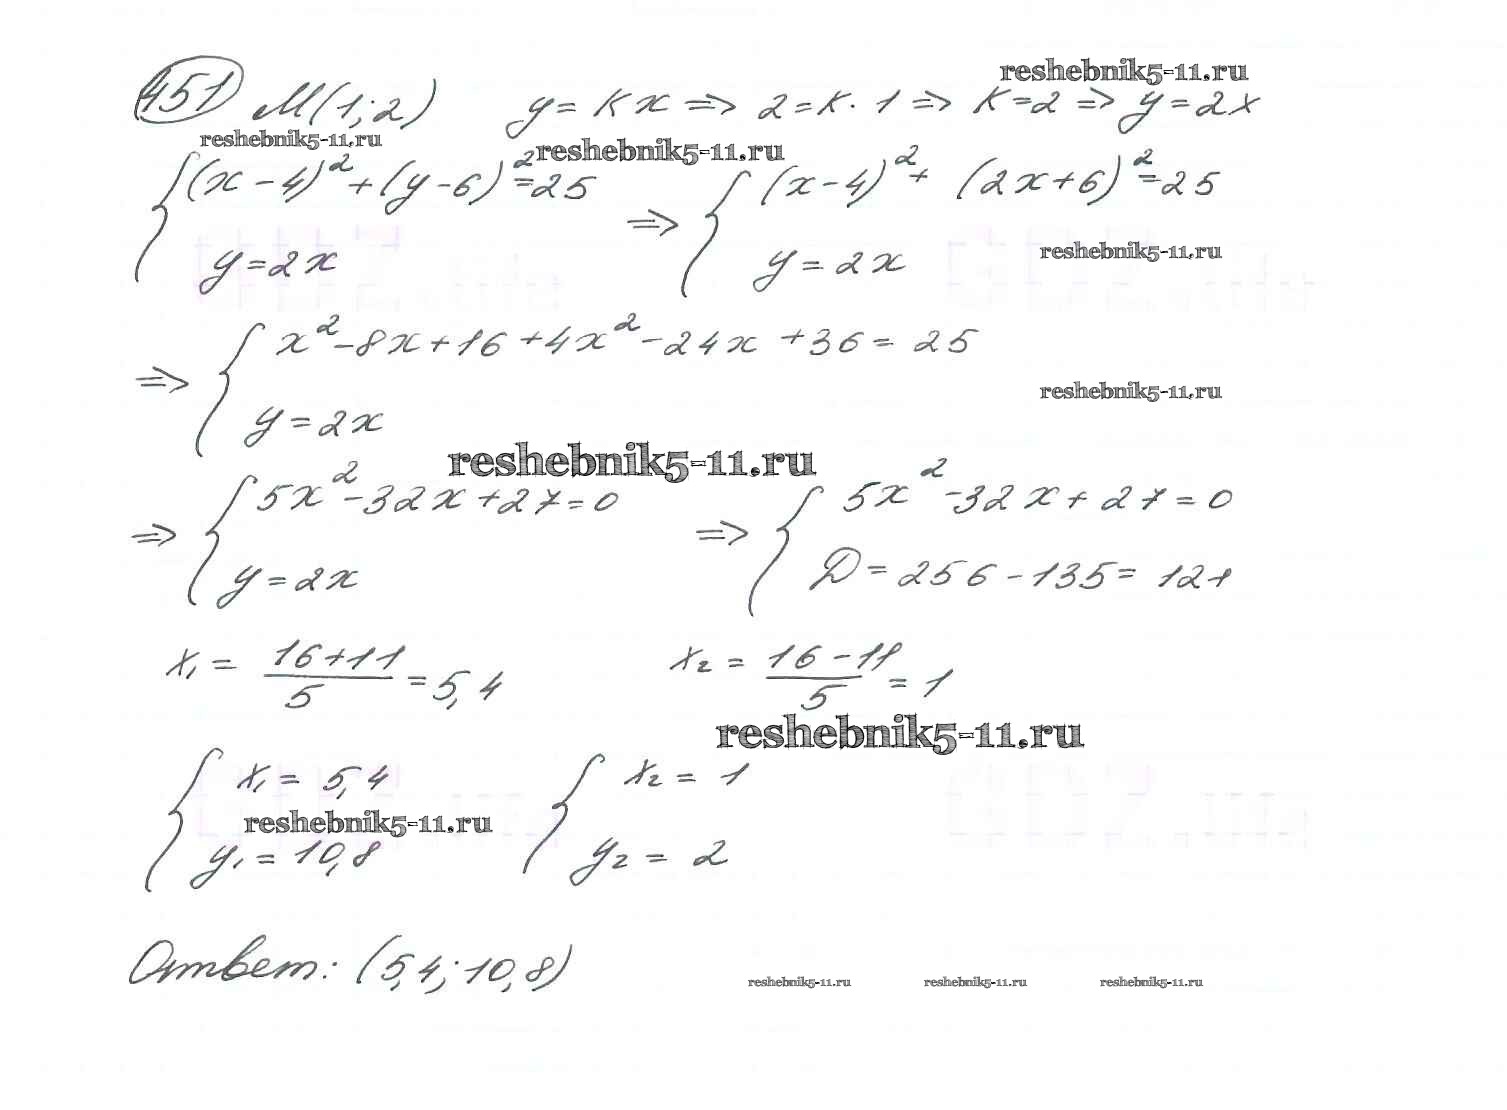 reshebnik5-11.ru
451 М(1;2) y = Kx => 2 = K·1 => K=2 => y = 2x
reshebnik5-11.ru reshebnik5-11.ru
{(x-4)²+(y-6)²=25 => {(x-4)²+ (2x+6)²=25
y=2x y=2x
reshebnik5-11.ru
=> {x²-8x+16+4x²-24x+36=25
reshebnik5-11.ru
y=2x
reshebnik5-11.ru
=> {5x²-32x+27=0 => {5x²-32x+27=0
y=2x D=256-135=121
x₁ = (16+11)/5 = 5,4 x₂ = (16-11)/5 = 1
reshebnik5-11.ru
{x₁ = 5,4 {x₂ = 1
reshebnik5-11.ru
y₁ = 10,8 y₂ = 2
Ответ: (5,4; 10,8)
reshebnik5-11.ru reshebnik5-11.ru reshebnik5-11.ru